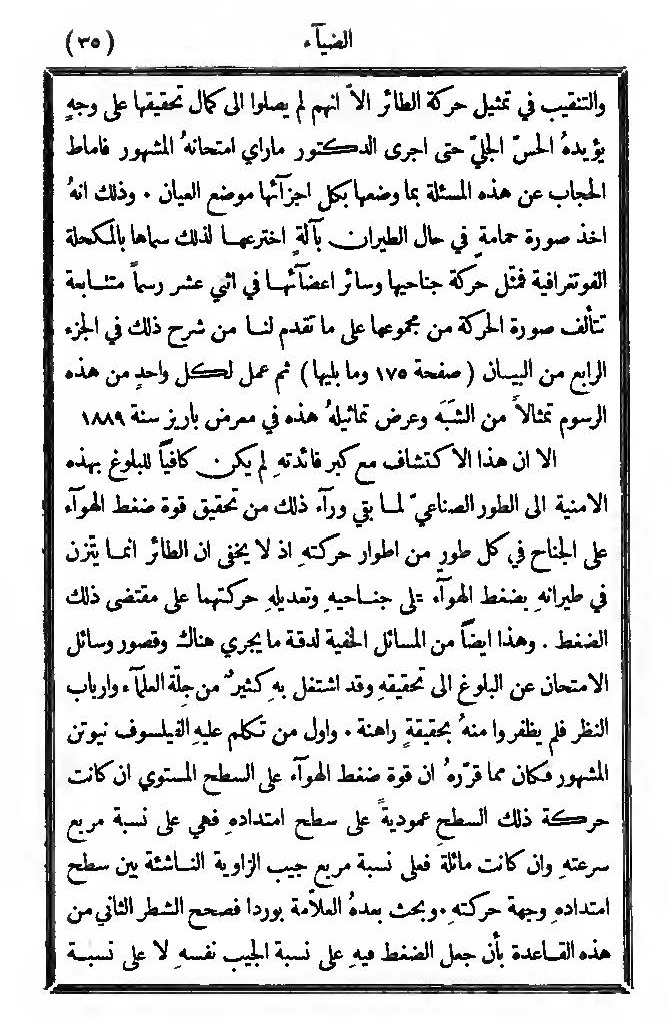 الضيآء
(٣٥)
والتنقيب في تمثيل حركة الطائر الاّ انهم لم يصلوا الى كمال تحقيقها على وجهٍ
يؤيدهُ الحسّ الجليّ حتى اجرى الدكتور ماراي امتحانهُ المشهور فاماط
الحجاب عن هذه المسئلة بما وضعها بكل اجزآئها موضع العيان ٠ وذلك انهُ
اخذ صورة حمامةٍ في حال الطيران بآلةٍ اخترعها لذلك سماها بالمكحلة
الفوتغرافية فمثل حركة جناحيها وسائر اعضآئها في اثني عشر رسماً متتابعة
تتألف صورة الحركة من مجموعها على ما تقدم لنا من شرح ذلك في الجزء
الرابع من البيان ( صفحة ١٧٥ وما يليها ) ثم عمل لكل واحدٍ من هذه
الرسوم تمثالاً من الشَبَه وعرض تماثيلهُ هذه في معرض باريز سنة ١٨٨٩
الا ان هذا الاكتشاف مع كبر فائدتهِ لم يكن كافياً للبلوغ بهذه
الامنية الى الطور الصناعيّ لما بقي ورآء ذلك من تحقيق قوة ضغط الهوآء
على الجناح في كل طورٍ من اطوار حركتهِ اذ لا يخفى ان الطائر انما يتّزن
في طيرانهِ بضغط الهوآء على جناحيهِ وتعديلهِ حركتهما على مقتضى ذلك
الضغط . وهذا ايضاً من المسائل الخفية لدقة ما يجري هناك وقصور وسائل
الامتحان عن البلوغ الى تحقيقهِ وقد اشتغل بهِ كثيرٌ من جلّة العلمآء وارباب
النظر فلم يظفروا منهُ بحقيقةٍ راهنة ٠ واول من تكلم عليهِ الفيلسوف نيوتن
المشهور فكان مما قرّرهُ ان قوة ضغط الهوآء على السطح المستوي ان كانت
حركة ذلك السطح عموديةً على سطح امتدادهِ فهي على نسبة مربع
سرعتهِ وان كانت مائلة فعلى نسبة مربع جيب الزاوية الناشئة بين سطح
امتدادهِ وجهة حركتهِ ٠ وبحث بعدهُ العلاّمة بوردا فصحح الشطر الثاني من
هذه القاعدة بأن جعل الضغط فيهِ على نسبة الجيب نفسهِ لا على نسبة